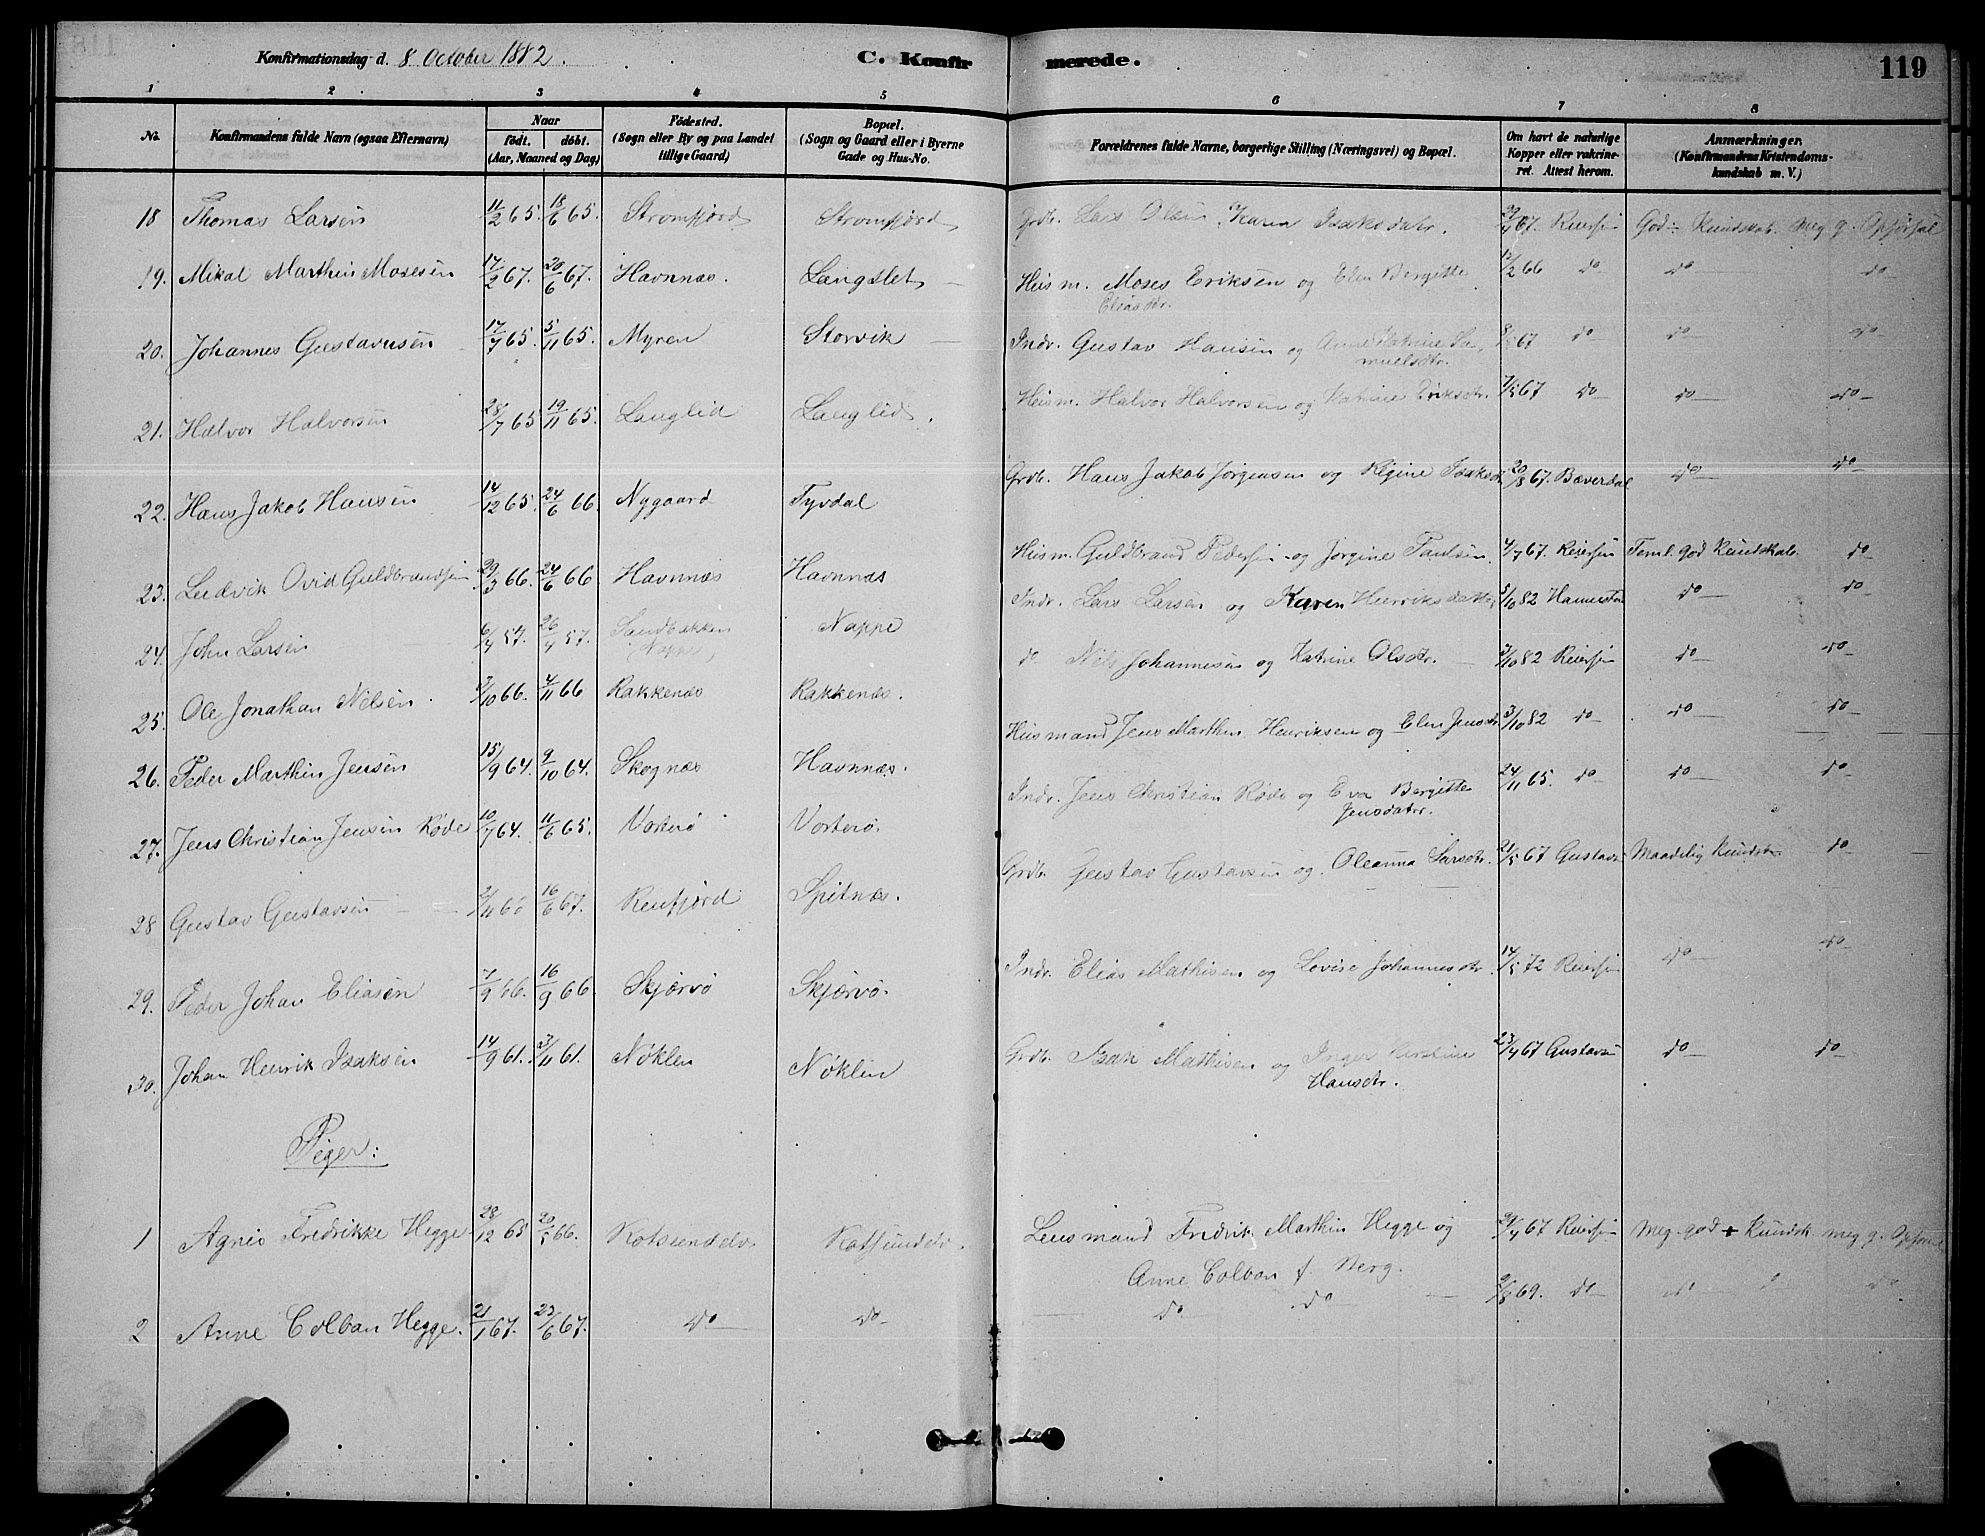 Konfirmationsdag d. 8 October 1882. C. Konfirmerede. 119
1 2 3 4 5 6 7 8
No. Konfirmandens fulde Navn (ogsaa Efternavn) Naar født. døbt. (Aar, Maaned og Dag) Fødested. (Sogn eller By og paa Landet tillige Gaard) Bopæl. (Sogn og Gaard eller i Byerne Gade og Hus-No. Forældrenes fulde Navne, borgerlige Stilling (Næringsvei) og Bopæl. Om havt de naturlige Kopper eller vakcineret. Attest herom. Anmærkninger. (Konfirmandens Kristendomskundskab m. V.)
18 Thomas Larsen 11/2 65. 18/6 65. Stromfjord Stromfjord Grdb. Lars Olsen Karen Isaksdatr. 29/4 67. Reiersen God Kundskab. meg g. Opførsel
19. Mikal Marthin Mosesen 17/2 67. 20/6 67. Havnnæs. Langslet Husm. Moses Eriksen og Elen Bergitte 12/2 66 do do do
Eliasdtr.
20. Johannes Gustavesen 17/7 65. 5/11 65. Myren Storvik Indr. Gustav Hansen og Anne Katrine Sa- 8/5 67 do do do
muelsdtr.
21. Halvor Halvorsen 28/7 65 19/11 65. Langlid Langlid. Husm. Halvor Halvorsen og Katrine Eriksdtr. 7/5 67 do do do
22. Hans Jakob Hansen 14/12 65. 24/6 66. Nygaard Tyvdal Grdb. Hans Jakob Jørgensen og Regine Isaksdr 20/8 67. Bæverdal do do
23. Ludvik Ovid Guldbrandsen 29/3 66. 24/6 66 Havnnæs Havnnæs Husm. Guldbrand Pedersen og Jørgine Paulsen. 4/7 67. Reiersen Teml. god Kundskab. do
24. John Larsen 6/4 57. 26/4 57. Sandbakken Nappe Indr. Lars Larsen og Karen Henriksdatter 5/10 82 do do
25. Ole Jonathan Nilsen. 3/10 66. 4/11 66 Rakkenæs Rakkenæs. do Nils Johannesen og Katrine Olsdtr. 3/10 82 Reiersen do do
26. Peder Marthin Jensen 15/9 64. 9/10 64. Skognæs Havnnæs. Husmand Jens Marthin Henriksen og Elen Jensdtr. 3/10 82 do do do
27. Jens Christian Jensen Røde 10/7 64. 11/6 65. Vorterø Vorterø. Indr. Jens Christian Røde og Eva Bergitte 24/11 65. do do do
Jensdatr.
28 Gustav Gustavsen 2/11 66 16/6 67. Reinfjord Spitnæs. Grdb. Gustav Gustavsen og Oleanna Larsdtr. 21/5 67 Gustavsen Maadelig Kundsk. do
29. Peder Johan Eliasen 7/9 66. 16/9 66. Skjærvø Skjærvø. Indr. Elias Mathisen og Lovise Johannesdtr. 14/5 72 Reiersen do do
30. Johan Henrik Isaksen 14/9 61. 3/11 61. Nøklen Nøklen Grdb. Isak Mathisen og Inger Kirstine 23/4 67 Gustavsen do do
Hansdtr.
Piger:
1 Agnes Fredrikke Hegge 28/12 65 20/5 66. Kotsundelv Kotsundelv. Lensmand Fredrik Marthin Hegge og 29/4 67 Reiersen Meg god Kundsk meg g. Opførsel
Anne Colban f. Berg.
2 Anne Colban Hegge. 21/1 67. 23/6 67. do do do do 9/8 69. do do do